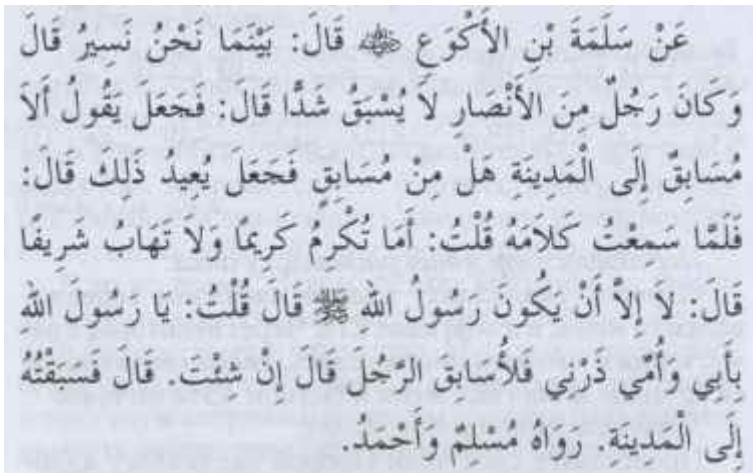 عَنْ سَلَمَةَ بْنِ الأَكْوَعِ ﷺ قَالَ: بَيْنَمَا نَحْنُ نَسِيرُ قَالَ
وَكَانَ رَجُلٌ مِنَ الأَنْصَارِ لاَ يُسْبَقُ شَدًّا قَالَ: فَجَعَلَ يَقُولُ أَلاَ
مُسَابِقٌ إِلَى الْمَدِينَةِ هَلْ مِنْ مُسَابِقٍ فَجَعَلَ يُعِيدُ ذَلِكَ قَالَ:
فَلَمَّا سَمِعْتُ كَلاَمَهُ قُلْتُ: أَمَا تُكْرِمُ كَرِيمًا وَلاَ تَهَابُ شَرِيفًا
قَالَ: لاَ إِلاَّ أَنْ يَكُونَ رَسُولُ اللهِ ﷺ قَالَ قُلْتُ: يَا رَسُولَ اللهِ
بِأَبِي وَأُمِّي ذَرْنِي فَلأُسَابِقَ الرَّجُلَ قَالَ إِنْ شِئْتَ. قَالَ فَسَبَقْتُهُ
إِلَى الْمَدِينَةِ. رَوَاهُ مُسْلِمٌ وَأَحْمَدُ.